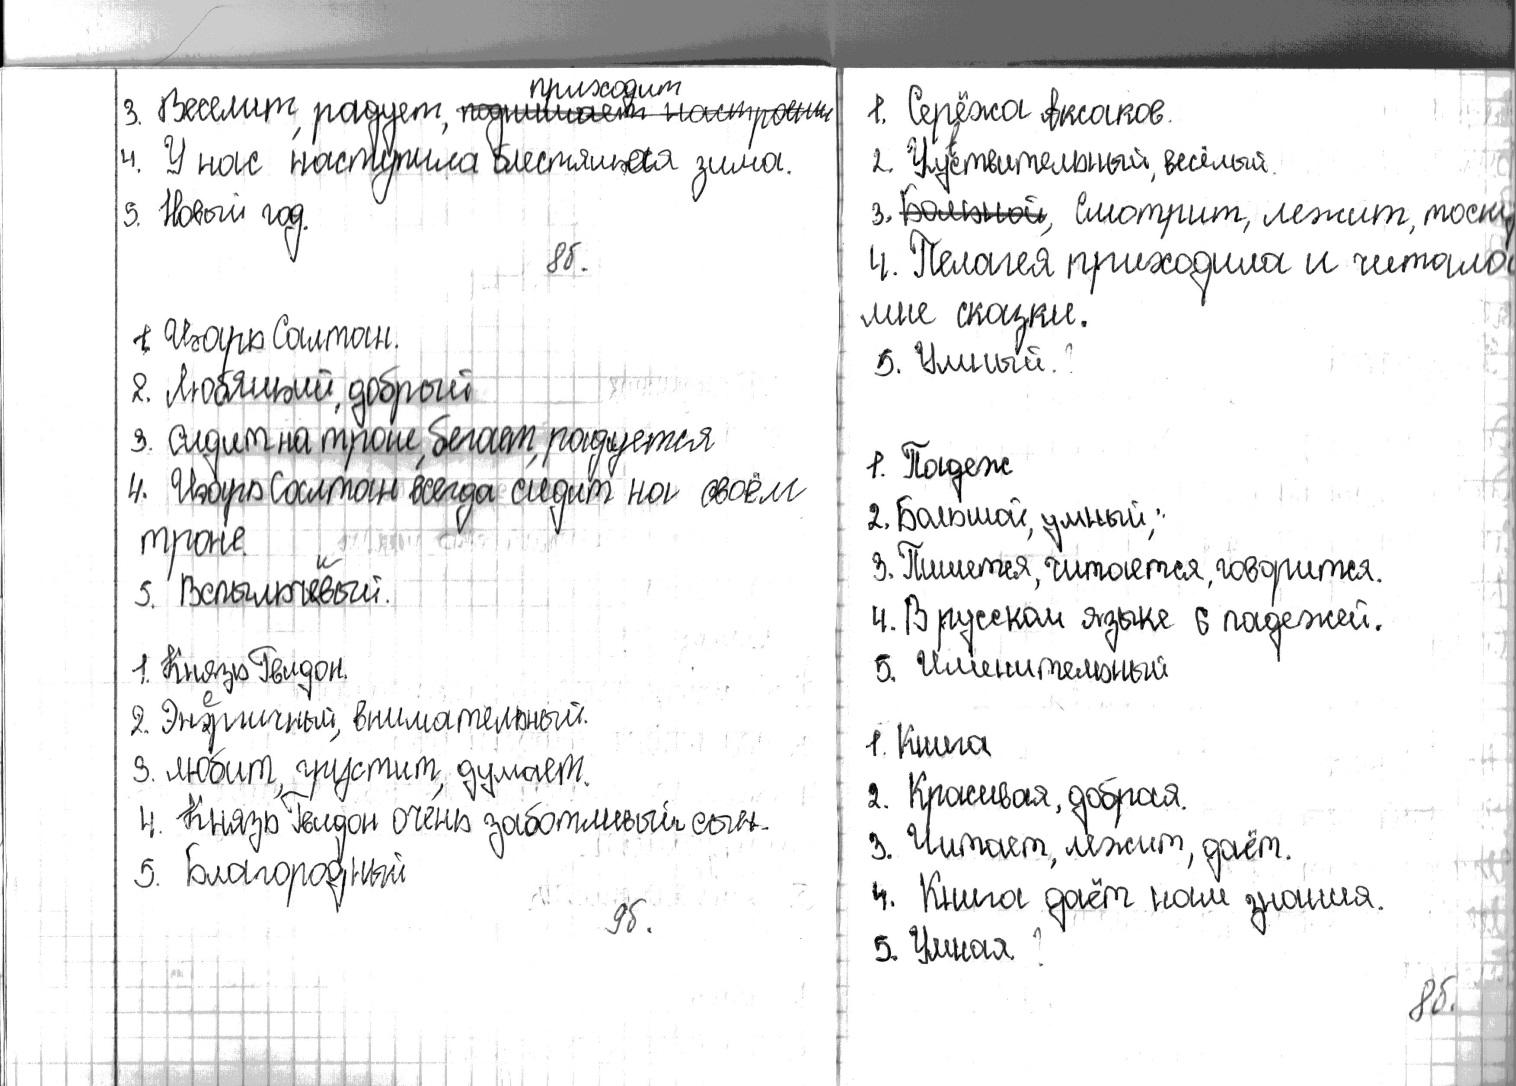 приходит
3. Веселит, радует, поднимает настроение
4. У нас наступила блестящая зима.
5. Новый год.
8б.
1. Царь Салтан.
2. Любящий, добрый
3. Сидит на троне, бегает, радуется
4. Царь Салтан всегда сидит на своём
троне.
5. Вспыльчивый.
1. Князь Гвидон.
2. Энергичный, внимательный.
3. Любит, грустит, думает.
4. Князь Гвидон очень заботливый сын.
5. Благородный
9б.
1. Серёжа Аксаков.
2. Чувствительный, весёлый.
3. Больной, Смотрит, лежит, тоску
4. Пелагея приходила и читала
мне сказки.
5. Умный. ?
1. Падеж
2. Большой, умный,
3. Пишется, читается, говорится.
4. В русском языке 6 падежей.
5. Именительный
1. Книга
2. Красивая, добрая.
3. Читает, лежит, даёт.
4. Книга даёт нам знания.
5. Умная. ?
8б.